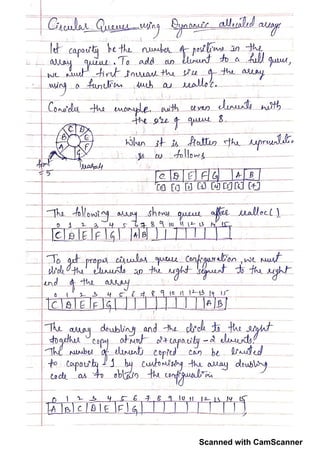 Circular Queues using Dynamic allocated arrays
let capacity be the number of positions in the
array queue. To add an element to a full queue,
we must first increase the size of the array
using a function such as realloc.
Consider the example with seven elements with
the size of queue 8.
C D
B E
A F
G
front
= 5
rear=4
When it is flatten the representation
is as follows
C D E F G A B
[0] [1] [2] [3] [4] [5] [6] [7]
The following array shows queue after realloc()
0 1 2 3 4 5 6 7 8 9 10 11 12 13 14 15
C D E F G A B
To get proper circular queue configuration, we must
slide the elements in the right segment to the right
end of the array
0 1 2 3 4 5 6 7 8 9 10 11 12 13 14 15
C D E F G A B
The array doubling and the slide to the right
together copy atmost 2*capacity-2 elements
The number of element copied can be limited
to capacity-1 by customising the array doubling
code as to obtain the configuration
0 1 2 3 4 5 6 7 8 9 10 11 12 13 14 15
A B C D E F G
Scanned with CamScanner